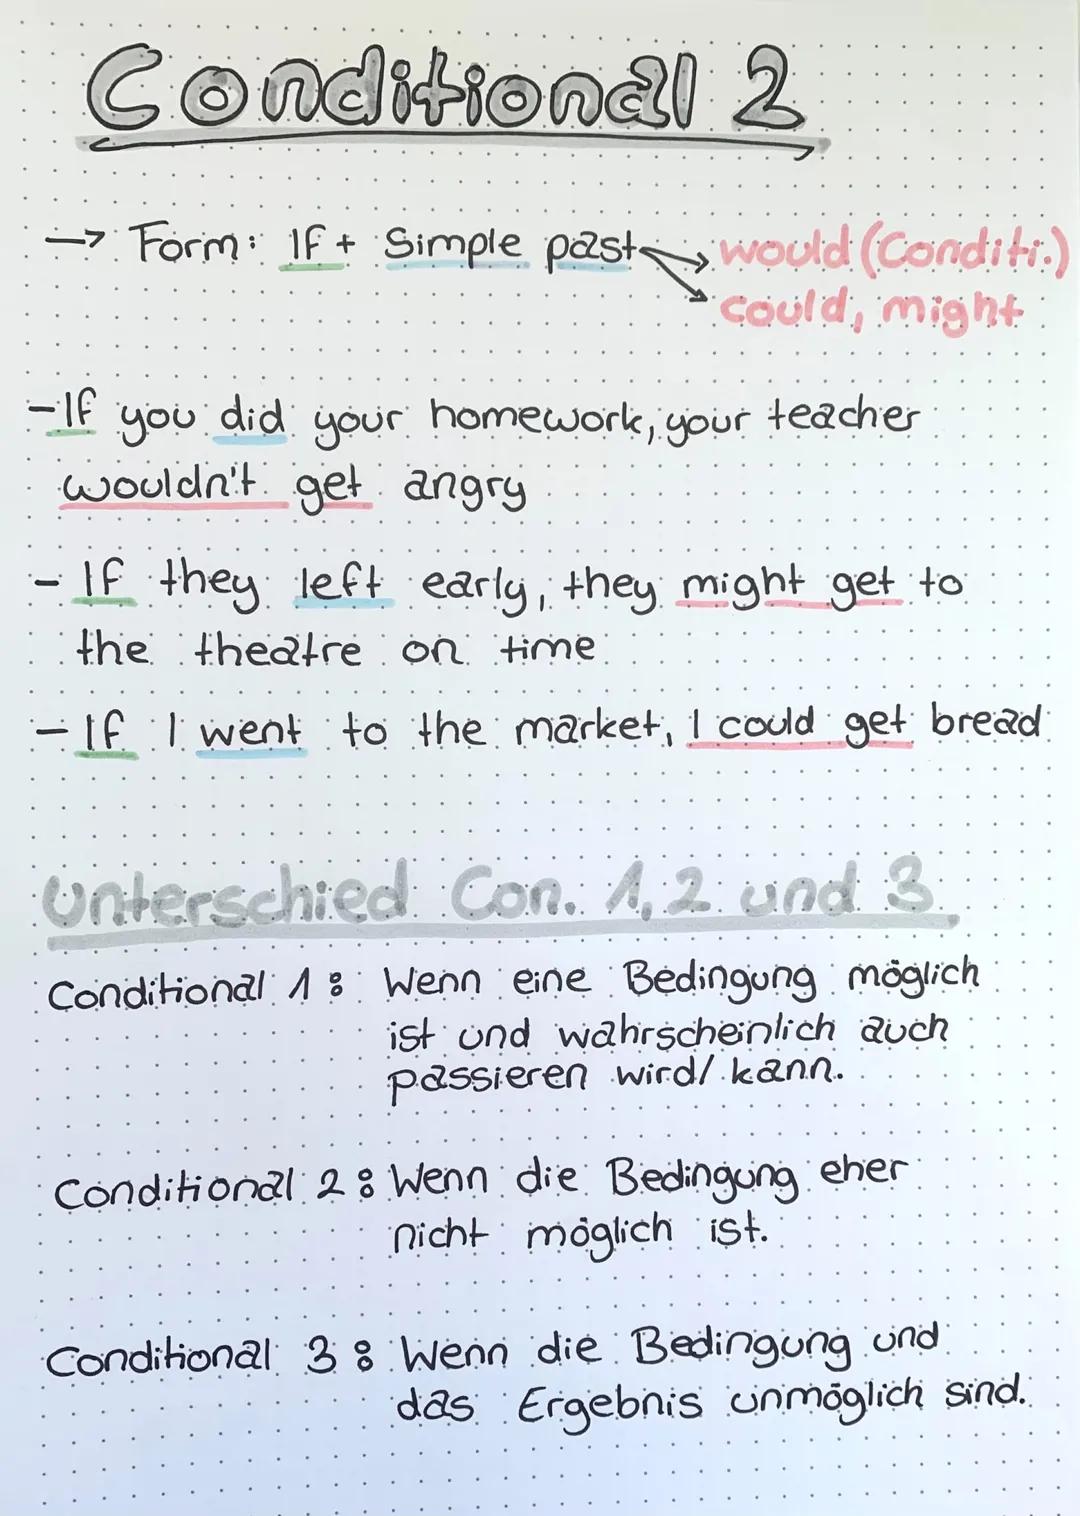 Conditional 2
→ Form: If + Simple past → would (Conditi.)
→ could, might
- If you did your homework, your teacher
wouldn't get angry
- If they left early, they might get to
the theatre on time
- If I went to the market, I could get bread
Unterschied Con. 1, 2 und 3
Conditional 1: Wenn eine Bedingung möglich
ist und wahrscheinlich auch
passieren wird/kann.
Conditional 2: Wenn die Bedingung eher
nicht möglich ist.
Conditional 3: Wenn die Bedingung und
das Ergebnis unmöglich sind.